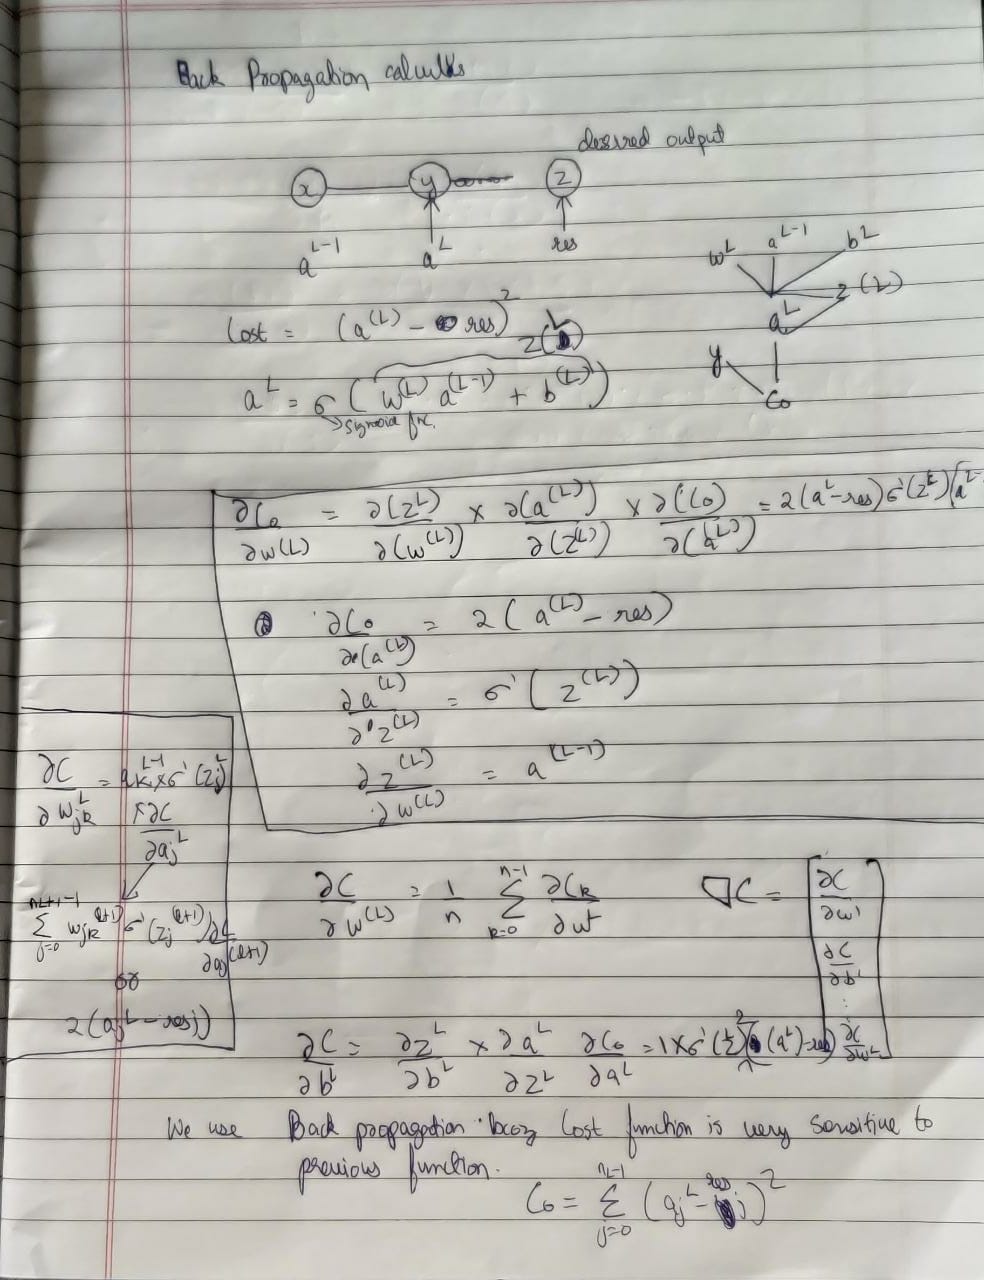 Back Propagation calculus
desired output
x y z
a^{L-1} a^L res
w^L a^{L-1} b^L
z(L)
a^L
y
C₀
Cost = (a^{(L)} - res)^2
z(L)
a^L = σ ( w^{(L)} a^{(L-1)} + b^{(L)} )
→ sigmoid fn.
∂C₀/∂w(L) = ∂(z^L)/∂(w^{(L)}) × ∂(a^{(L)})/∂(z^{(L)}) × ∂(C₀)/∂(a^{(L)}) = 2(a^L - res) σ'(z^L)(a^{L-
∂C₀/∂(a^{(L)}) = 2 ( a^{(L)} - res)
∂a^{(L)}/∂z^{(L)} = σ' ( z^{(L)} )
∂z^{(L)}/∂w^{(L)} = a^{(L-1)}
∂C/∂w_{jk}^L = a_k^{L-1} × σ' (z_j^L)
× ∂C/∂a_j^L
∑_{j=0}^{n_{L+1}-1} w_{jk}^{(l+1)} σ' (z_j^{(l+1)}) ∂C/∂a_j^{(l+1)}
or
2(a_j^L - res_j)
∂C/∂w^{(L)} = 1/n ∑_{k=0}^{n-1} ∂C_k/∂w^L
∇C = [ ∂C/∂w^1
∂C/∂b^1
⋮
∂C/∂w^L ]
∂C/∂b^L = ∂z^L/∂b^L × ∂a^L/∂z^L ∂C₀/∂a^L = 1 × σ' (z^L) 2 (a^L) - res)
We use Back propagation bcoz Cost function is very sensitive to
previous function.
C₀ = ∑_{j=0}^{n_L-1} (a_j^L - res j)^2